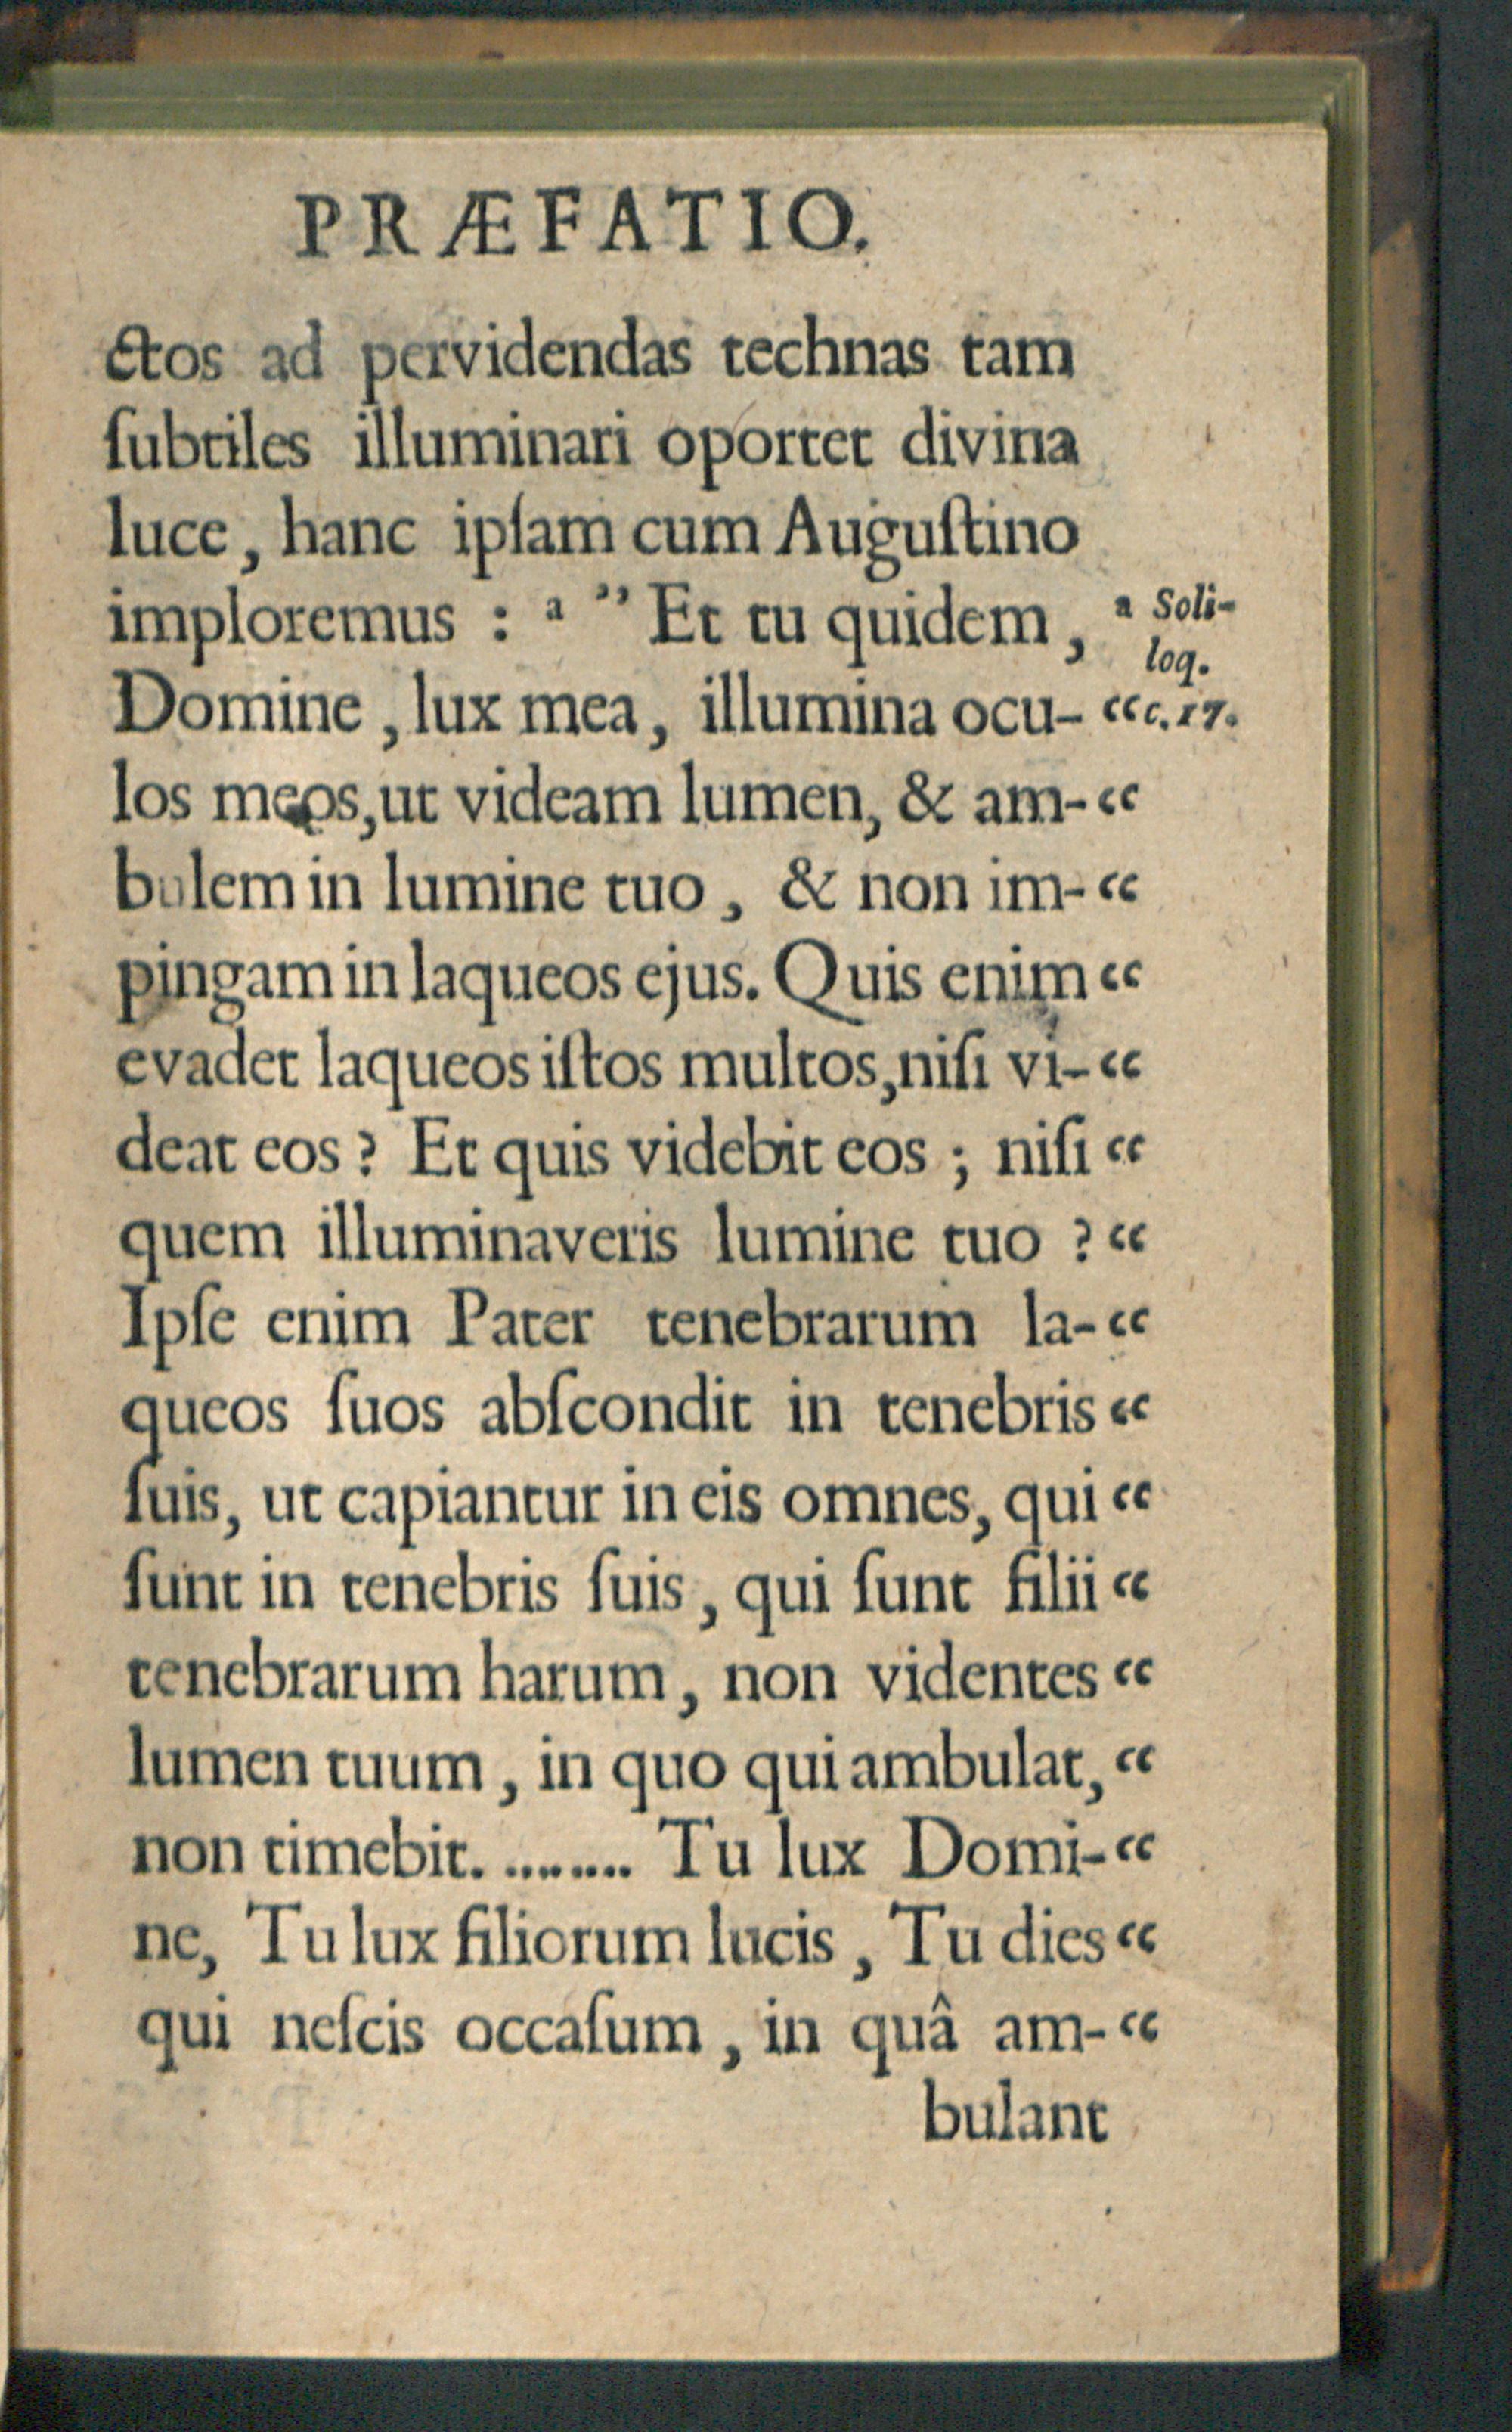 PRÆFATIO.
ctos ad pervidendas technas tam
ſubtiles illuminari oportet divina
luce, hanc ipſam cum Auguſtino
imploremus : ª ” Et tu quidem, ª Soli-
loq.
Domine, lux mea, illumina ocu- “ c. 17.
los meos, ut videam lumen, & am- “
bulem in lumine tuo, & non im- “
pingam in laqueos ejus. Quis enim “
evadet laqueos iſtos multos, niſi vi- “
deat eos? Et quis videbit eos ; niſi “
quem illuminaveris lumine tuo ? “
Ipſe enim Pater tenebrarum la- “
queos ſuos abſcondit in tenebris “
ſuis, ut capiantur in eis omnes, qui “
ſunt in tenebris ſuis, qui ſunt filii “
tenebrarum harum, non videntes “
lumen tuum, in quo qui ambulat, “
non timebit. ........ Tu lux Domi- “
ne, Tu lux filiorum lucis, Tu dies “
qui neſcis occaſum, in quâ am- “
bulant